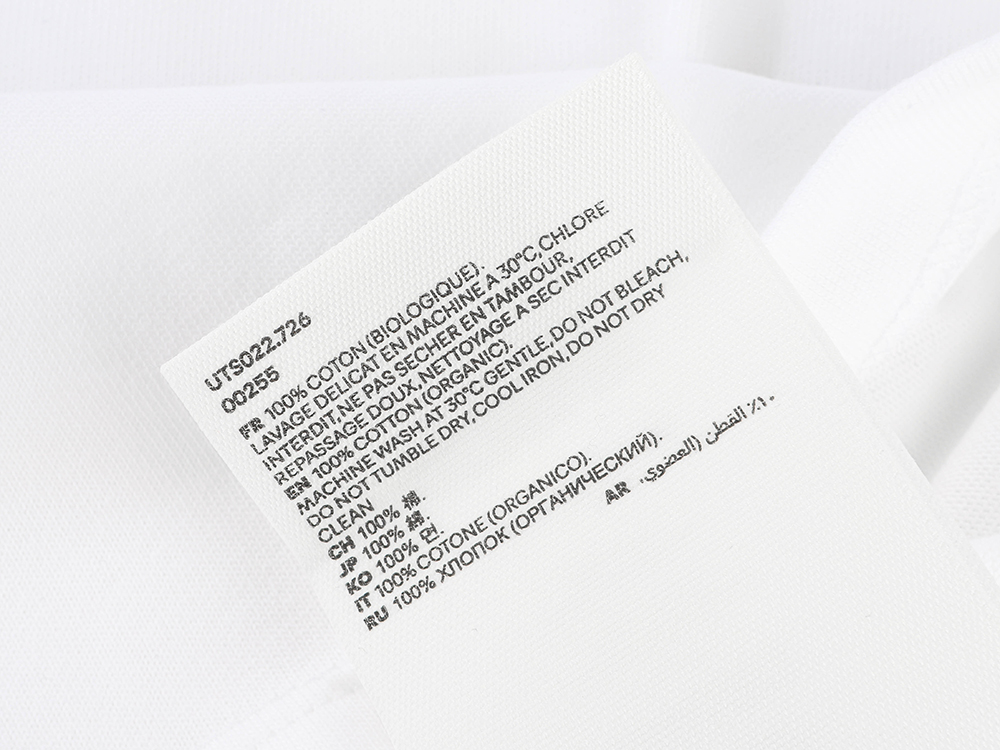 UTS022.726
00255
FR 100% COTON (BIOLOGIQUE).
LAVAGE DELICAT EN MACHINE A 30°C,CHLORE
INTERDIT,NE PAS SECHER EN TAMBOUR,
REPASSAGE DOUX,NETTOYAGE A SEC INTERDIT
EN 100% COTTON (ORGANIC).
MACHINE WASH AT 30°C GENTLE,DO NOT BLEACH,
DO NOT TUMBLE DRY,COOL IRON,DO NOT DRY
CLEAN
CH 100% 棉.
JP 100% 綿.
KO 100% 면.
IT 100% COTONE (ORGANICO).
RU 100% ХЛОПОК (ОРГАНИЧЕСКИЙ).
AR ٪١٠ القطن (العضوي.